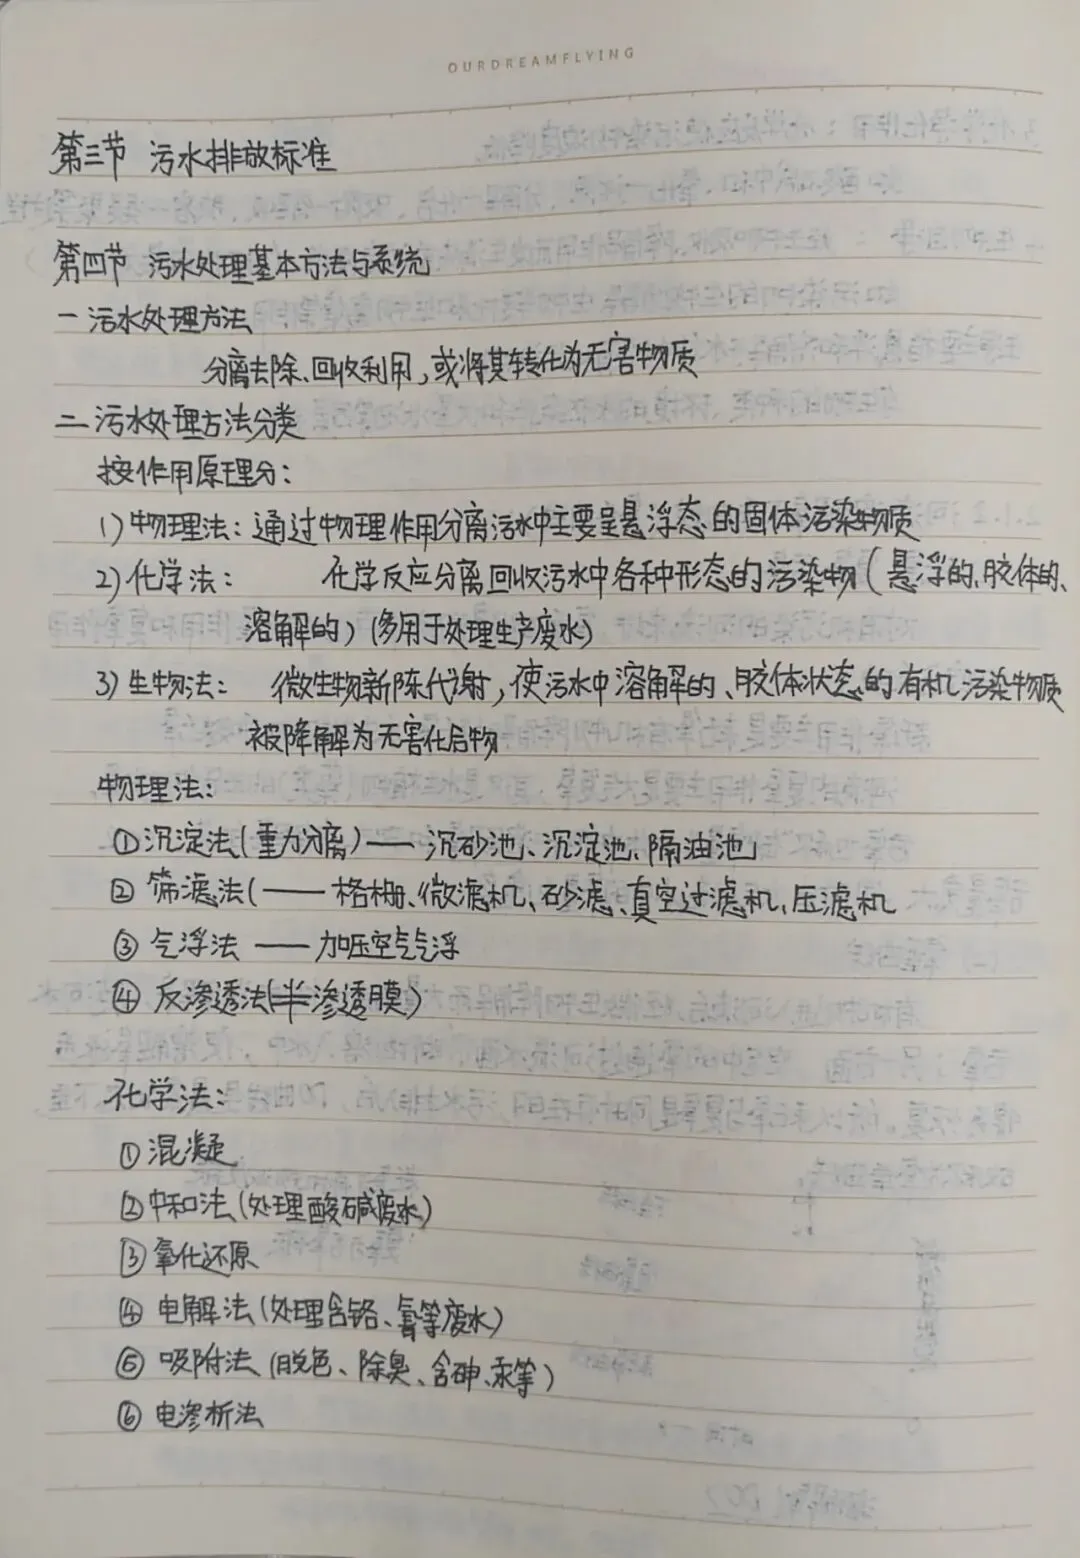 OURDREAMFLYING
第三节 污水排放标准
第四节 污水处理基本方法与系统
一 污水处理方法
分离去除、回收利用，或将其转化为无害物质
二 污水处理方法分类
按作用原理分：
1）物理法：通过物理作用分离污水中主要呈悬浮态的固体污染物质
2）化学法： 化学反应分离回收污水中各种形态的污染物（悬浮的、胶体的、
溶解的）（多用于处理生产废水）
3）生物法： 微生物新陈代谢，使污水中溶解的、胶体状态的有机污染物质
被降解为无害化合物
物理法：
① 沉淀法（重力分离）—— 沉砂池、沉淀池、隔油池
② 筛滤法（—— 格栅、微滤机、砂滤、真空过滤机、压滤机
③ 气浮法 —— 加压空气气浮
④ 反渗透法（半渗透膜）
化学法：
① 混凝
② 中和法（处理酸碱废水）
③ 氧化还原
④ 电解法（处理含铬、氰等废水）
⑤ 吸附法（脱色、除臭、含砷、汞等）
⑥ 电渗析法